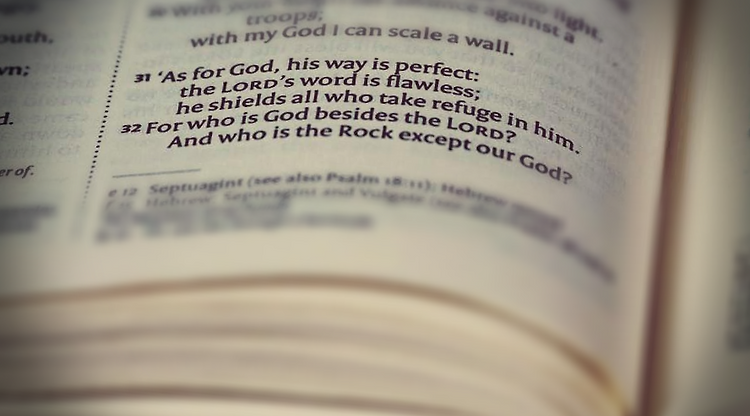 outh,
vn;
d.
er of.
With your
against a
light.
troops;
with my God I can scale a wall.
31 ‘As for God, his way is perfect:
the LORD’s word is flawless;
he shields all who take refuge in him.
32 For who is God besides the LORD?
And who is the Rock except our God?
e 12 Septuagint (see also Psalm 18:11); Hebrew
Hebrew; Septuagint and Vulgate (see